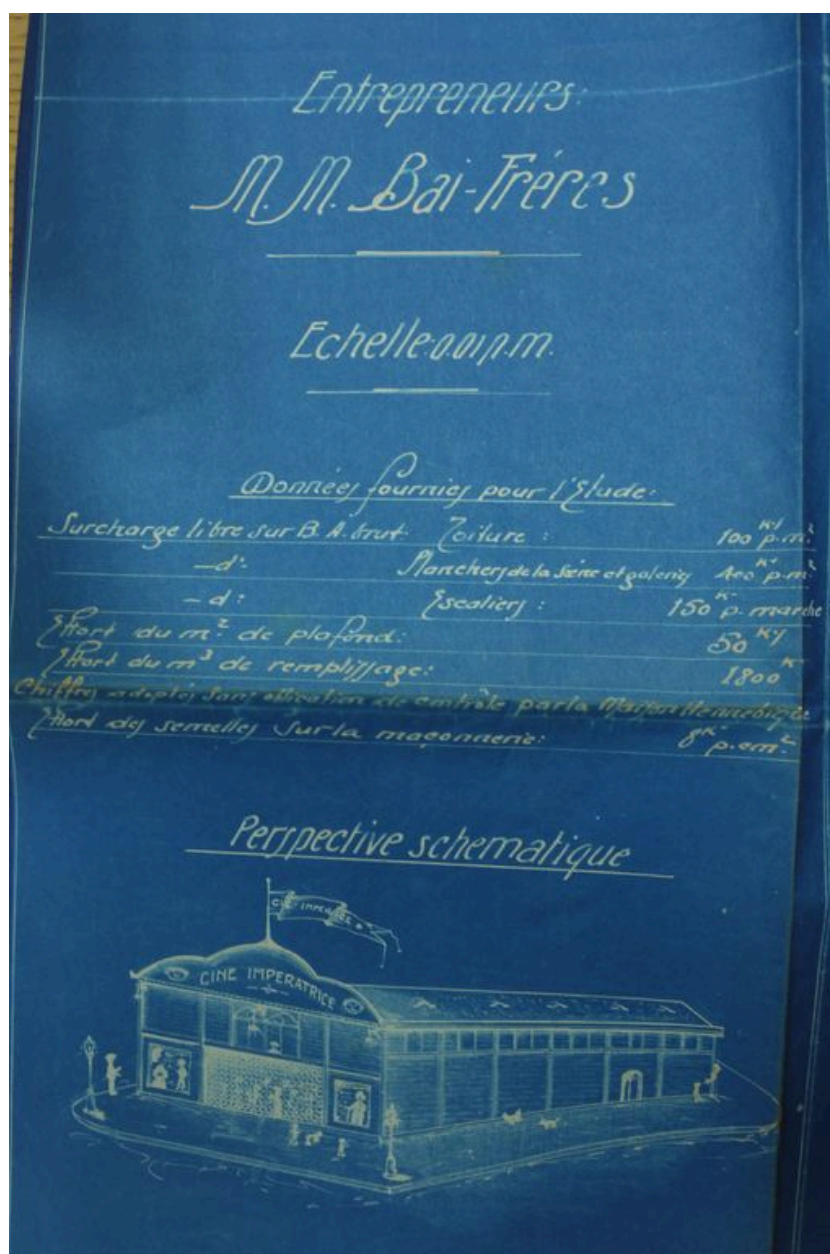 Entrepreneurs:
M. M. Bai-Fréres
Echelle: 0.01 p.m.
Données fournies pour l'Etude:
Surcharge libre sur B. A. brut Toiture : 100 K˚ p.m.²
–d˚: Planchers de la Scène et galeries 400 K˚ p.m²
–d: Escaliers : 150 K˚ p. marche
Effort du m² de plafond: 50 K˚
Effort du m³ de remplissage: 1800 K
Chiffres adoptés sans obligation de contrôle par la Maison Hennebique
Effort des semelles sur la maçonnerie: 8 K˚ p.cm²
Perspective schematique
CINE IMPERATRICE
CINE IMPERATRICE